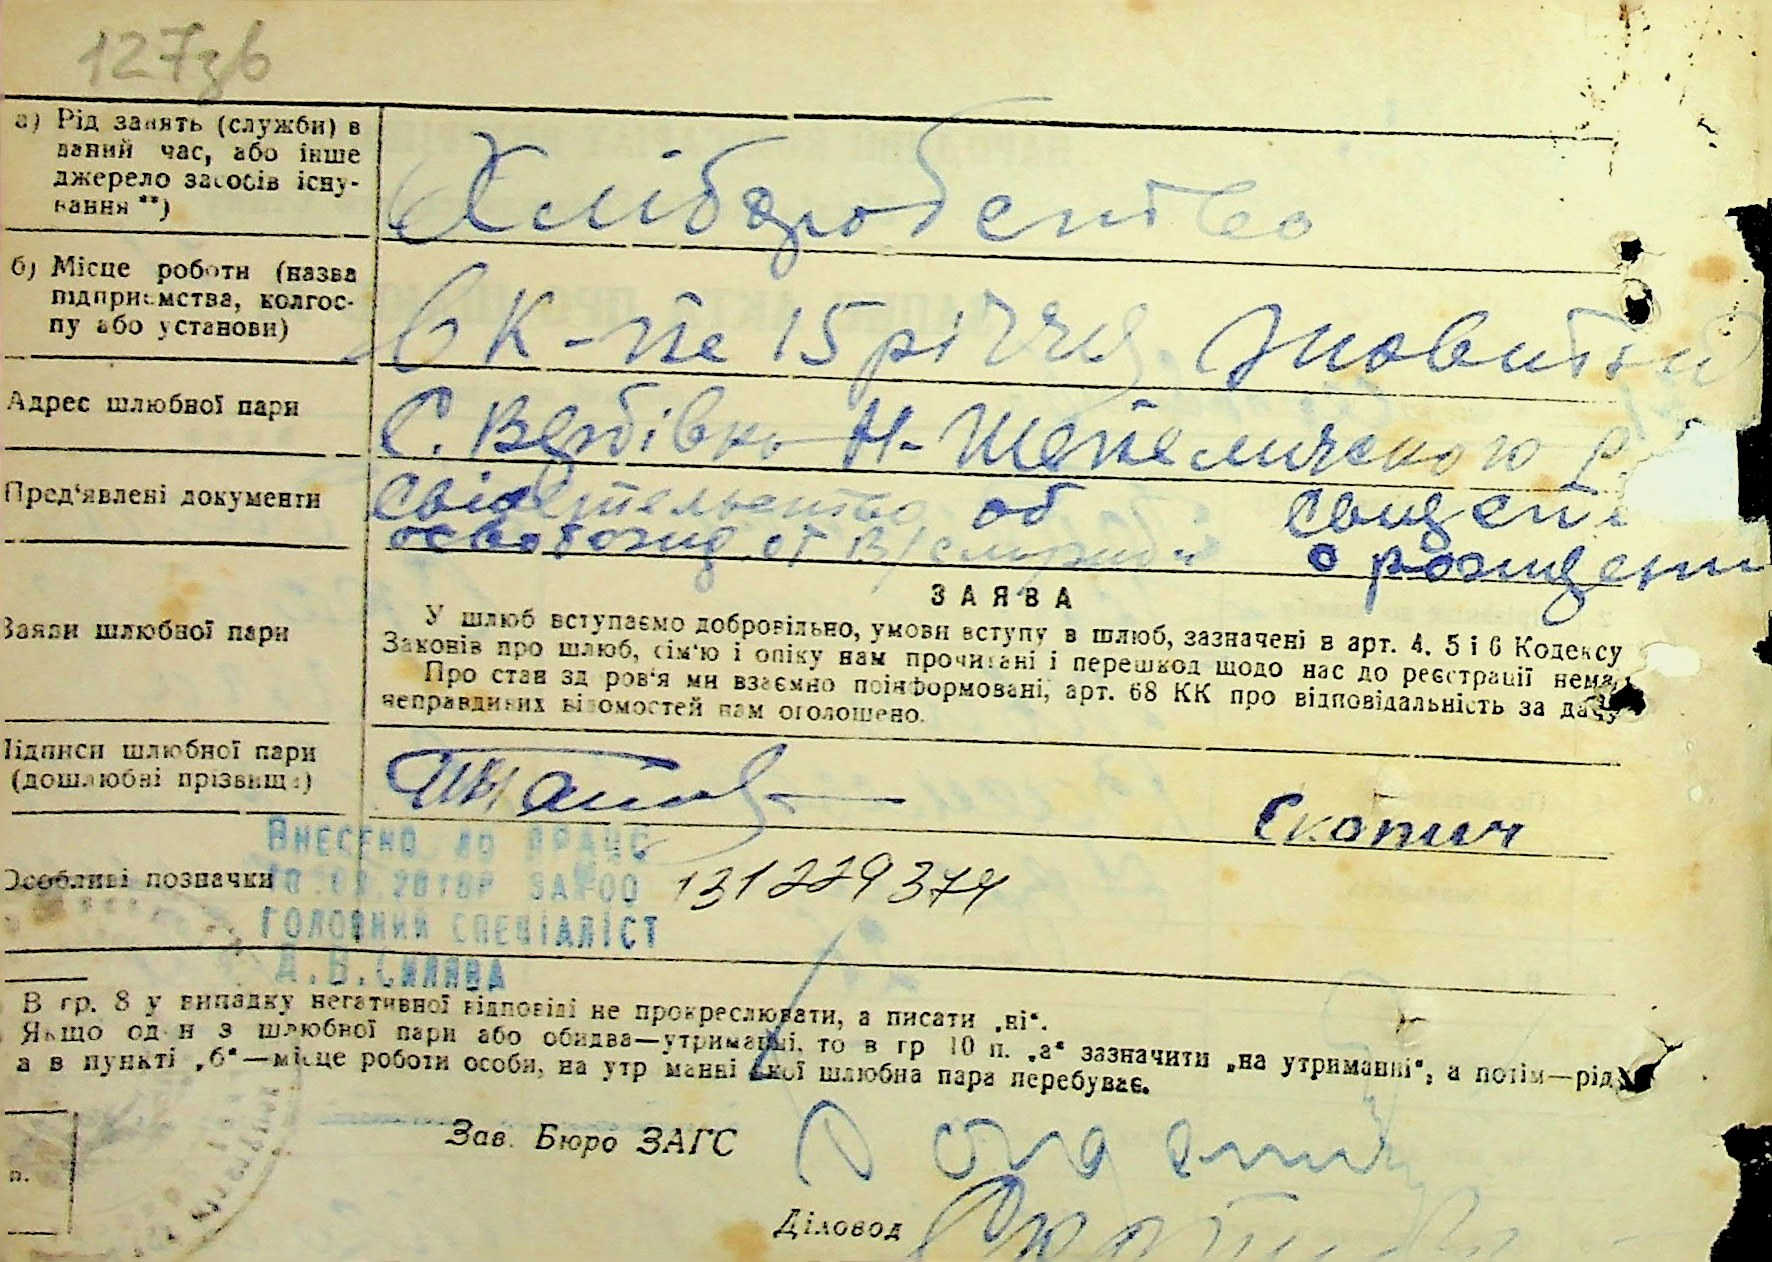 127зв
а) Рід занять (служби) в
даний час, або інше
джерело засобів існу-
вання **)
Хліборобство
б) Місце роботи (назва
підприємства, колгос-
пу або установи)
в к-пе 15 річчя Жовтня
Адрес шлюбної пари
С. Вербівка Н-Шепеличського р
Пред'явлені документи
свідетельство об
освобожд от в/службы
свидет
о рождени
ЗАЯВА
Заяви шлюбної пари
У шлюб вступаємо добровільно, умови вступу в шлюб, зазначені в арт. 4, 5 і 6 Кодексу
Законів про шлюб, сім'ю і опіку нам прочитані і перешкод щодо нас до реєстрації нема.
Про стан здоров'я ми взаємно поінформовані, арт. 68 КК про відповідальність за дачу
неправдивих відомостей нам оголошено.
Підписи шлюбної пари
(дошлюбні прізвища)
Скопич
Внесено до ДРАЦС
Особливі позначки
131229374
головний спеціаліст
В гр. 8 у випадку негативної відповіді не прокреслювати, а писати „ні“.
Якщо один з шлюбної пари або обидва—утриманці, то в гр 10 п. „а“ зазначити „на утриманні“, а потім—рід
а в пункті „б“—місце роботи особи, на утриманні якої шлюбна пара перебуває.
Зав. Бюро ЗАГС
п.
Діловод